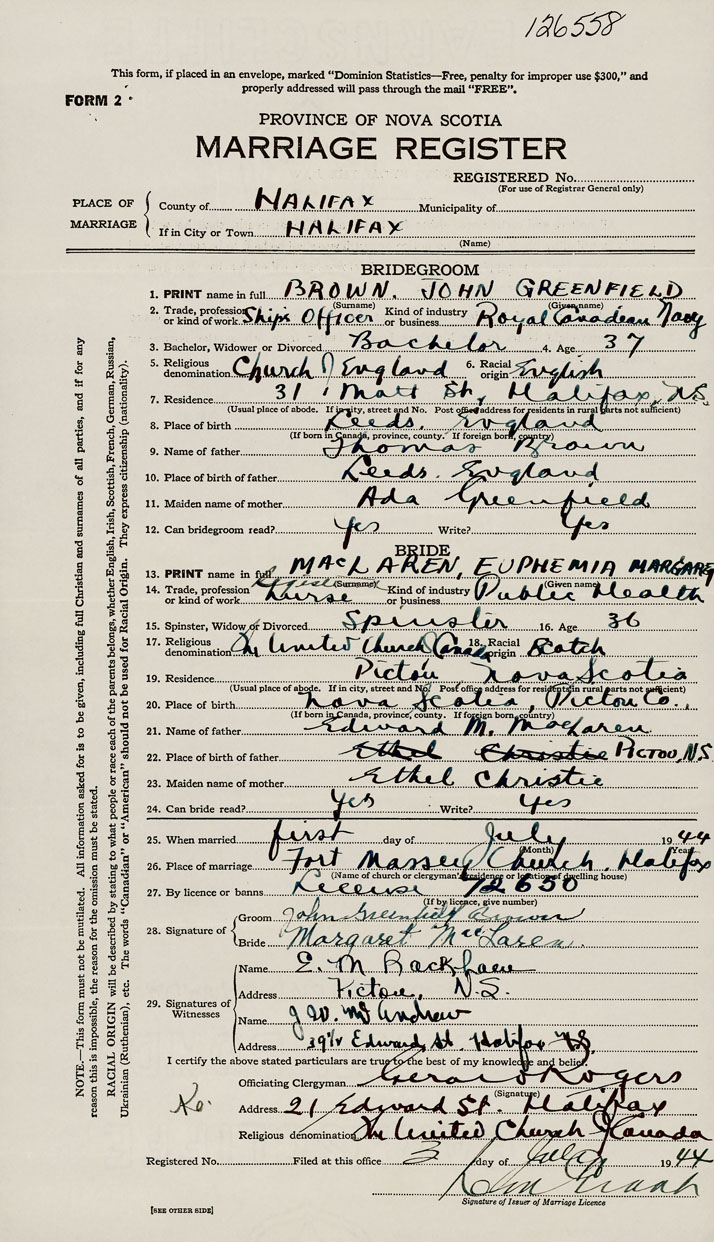 126558
This form, if placed in an envelope, marked "Dominion Statistics—Free, penalty for improper use $300," and
properly addressed will pass through the mail "FREE".
FORM 2
PROVINCE OF NOVA SCOTIA
MARRIAGE REGISTER
REGISTERED No.
(For use of Registrar General only)
PLACE OF MARRIAGE
County of HALIFAX Municipality of
If in City or Town HALIFAX
(Name)
BRIDEGROOM
1. PRINT name in full BROWN. JOHN GREENFIELD
(Surname) (Given name)
2. Trade, profession or kind of work Ships Officer Kind of industry or business Royal Canadian Navy
3. Bachelor, Widower or Divorced Bachelor 4. Age 37
5. Religious denomination Church of England 6. Racial origin English
7. Residence 31 Matt St, Halifax, N.S.
(Usual place of abode. If in city, street and No. Post office address for residents in rural parts not sufficient)
8. Place of birth Leeds. England
(If born in Canada, province, county. If foreign born, country)
9. Name of father Thomas Brown
10. Place of birth of father Leeds. England
11. Maiden name of mother Ada Greenfield
12. Can bridegroom read? Yes Write? Yes
BRIDE
13. PRINT name in full MACLAREN, EUPHEMIA MARGARET
(Surname) (Given name)
14. Trade, profession or kind of work Nurse Kind of industry or business Public Health
15. Spinster, Widow or Divorced Spinster 16. Age 36
17. Religious denomination The United Church Canada 18. Racial origin Scotch
19. Residence Pictou Nova Scotia
(Usual place of abode. If in city, street and No. Post office address for residents in rural parts not sufficient)
20. Place of birth Nova Scotia, Pictou Co.,
(If born in Canada, province, county. If foreign born, country)
21. Name of father Edward M. MacLaren
22. Place of birth of father Ethel Christie PICTOU, N.S.
23. Maiden name of mother Ethel Christie
24. Can bride read? Yes Write? Yes
25. When married first day of July 1944
(Month) (Year)
26. Place of marriage Fort Massey Church. Halifax
(Name of church or clergyman's residence or location of dwelling house)
27. By licence or banns License 72650
(If by licence, give number)
28. Signature of
Groom John Greenfield Brown
Bride Margaret MacLaren.
29. Signatures of Witnesses
Name E. M.
Address Pictou, N.S.
Name J W. McAndrew
Address 39½ Edward St Halifax NS.
I certify the above stated particulars are true to the best of my knowledge and belief.
Officiating Clergyman Rogers
(Signature)
Address 21 Edward St. Halifax
Religious denomination The United Church of Canada
Registered No. Filed at this office 3 day of July 1944
Signature of Issuer of Marriage Licence
[SEE OTHER SIDE]
NOTE.—This form must not be mutilated. All information asked for is to be given, including full Christian and surnames of all parties, and if for any
reason this is impossible, the reason for the omission must be stated.
RACIAL ORIGIN will be described by stating to what people or race each of the parents belongs, whether English, Irish, Scottish, French, German, Russian,
Ukrainian (Ruthenian), etc. The words "Canadian" or "American" should not be used for Racial Origin. They express citizenship (nationality).